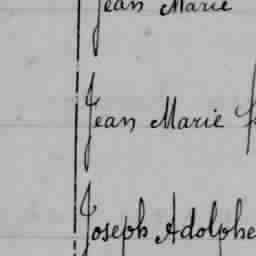 Jean Marie
Jean Marie
Joseph Adolphe